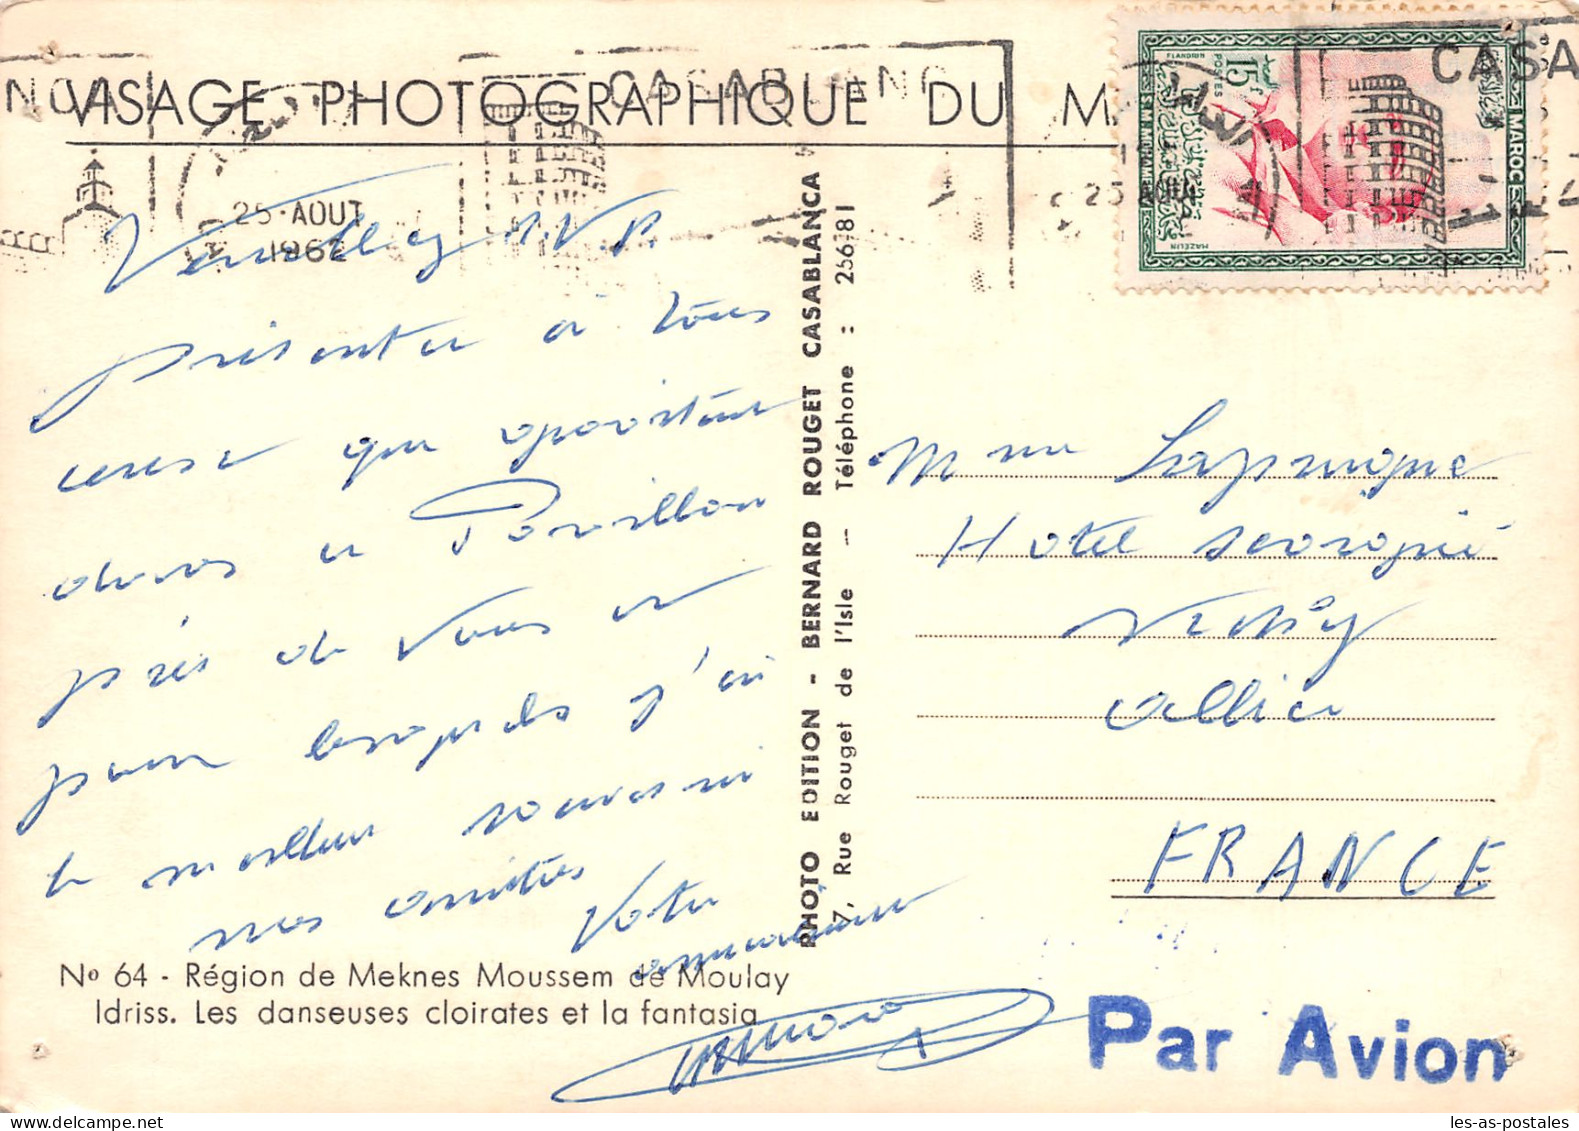 VISAGE PHOTOGRAPHIQUE DU
CASABLANC
25 AOUT
1962
CASA
25 AOUT
15F
POSTES
MAROC
MAZELIN
Veuillez S.V.P.
présenter à tous
ceux que
au Pavillon
près de Vous et
pour lesquels j'ai
le meilleur souvenir
nos amitiés
Votre
PHOTO EDITION - BERNARD ROUGET CASABLANCA
7, Rue Rouget de l'Isle — Téléphone : 256-81
Mme Lapruigne
Hotel
Vichy
Allier
FRANCE
No 64 - Région de Meknes Moussem de Moulay
Idriss. Les danseuses cloirates et la fantasia
Par Avion
les-as-postales